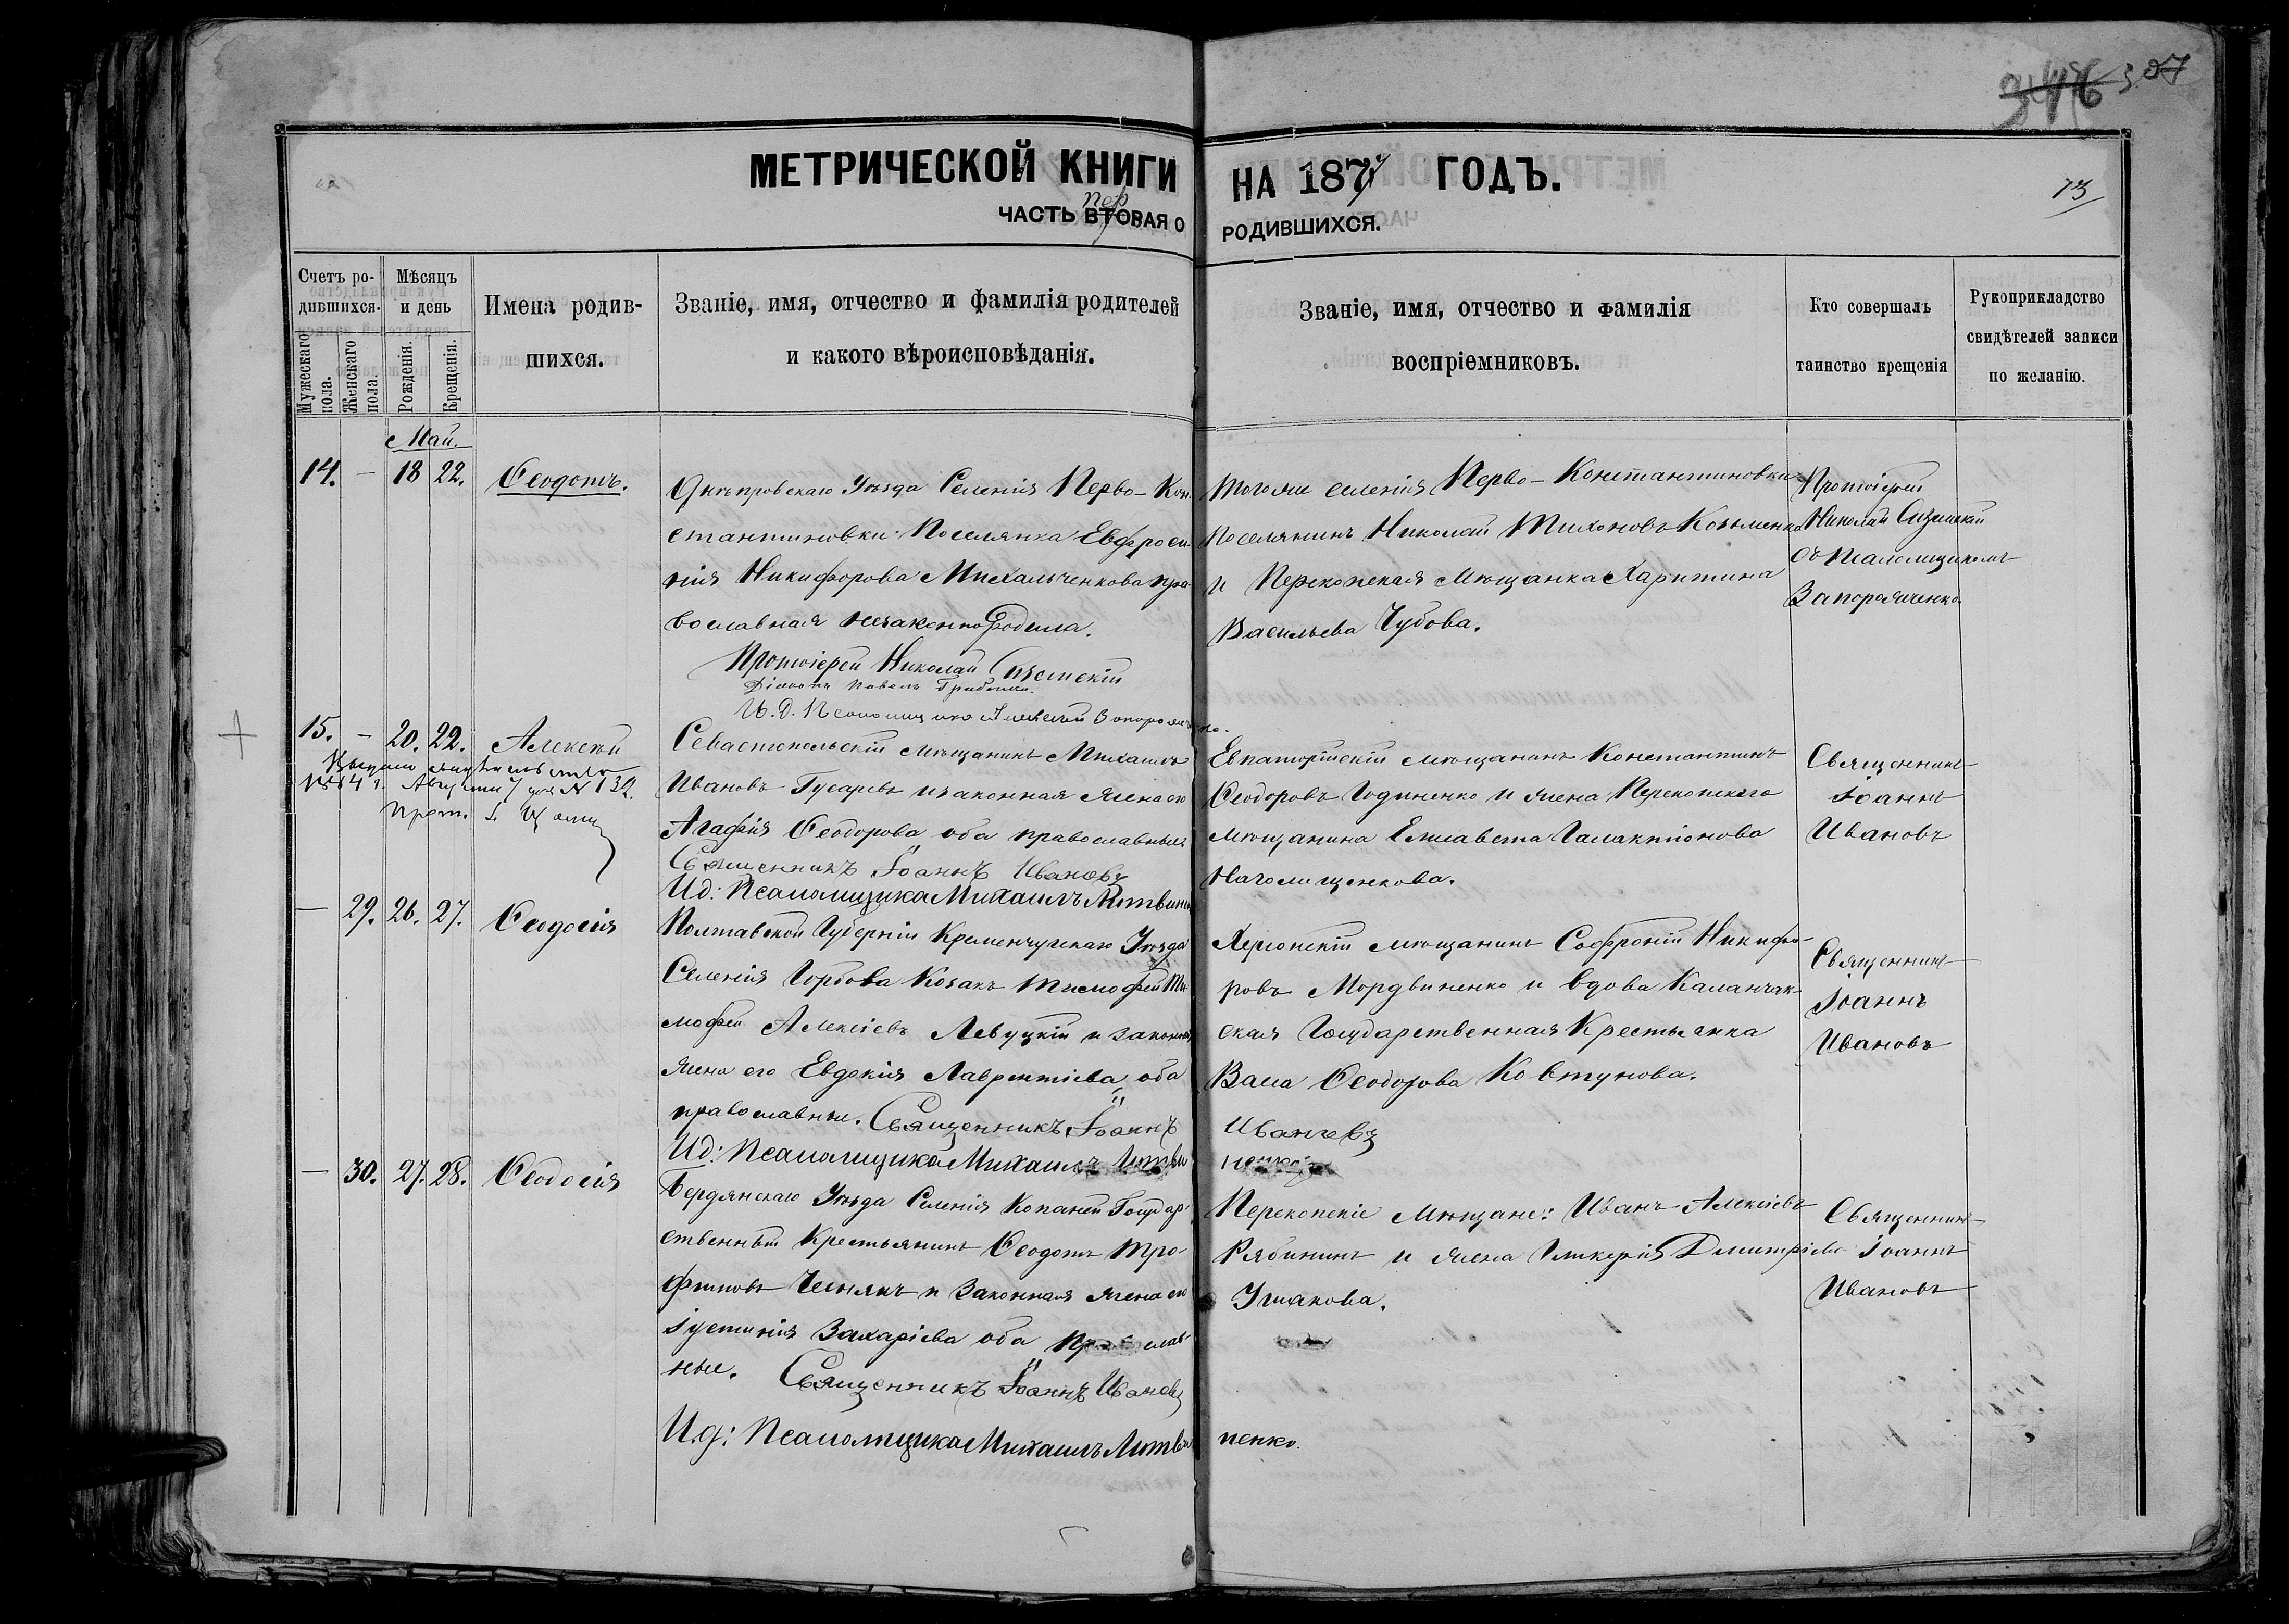 346 307
МЕТРИЧЕСКОЙ КНИГИ НА 1877 ГОДЪ.
13
ЧАСТЬ ВТОРАЯ О РОДИВШИХСЯ.
пер
Счетъ родившихся.
Мужескаго пола.
Женскаго пола.
Мѣсяцъ и день
Рожденія.
Крещенія.
Имена родившихся.
Званіе, имя, отчество и фамилія родителей
и какого вѣроисповѣданія.
Званіе, имя, отчество и фамилія
воспріемниковъ.
Кто совершалъ
таинство крещенія
Рукоприкладство
свидѣтелей записи
по желанію.
Май.
14. — 18 22. Ѳеодотъ.
Днѣпровскаго Уѣзда Селенія Перво-Кон
стантиновки Поселянка Евфроси
нія Никифорова Михальченкова пра
вославная незаконно родила.
Протоіерей Николай
Діаконъ Павелъ
И. д. Псаломщика Алексѣй Запорожченко.
Тогоже селенія Перво-Константиновки
Поселянинъ Николай Тихоновъ Козьменко
и Перекопская Мѣщанка Харитина
Васильева Чубова.
Протоіерей
Николай
съ Псаломщикомъ
Запорожченко
15. — 20. 22. Алексѣй
Выдано свидѣтельство
Августа 7 дня № 132.
Прот.
Севастопольскій мѣщанинъ Михаилъ
Ивановъ Гусаревъ и законная жена его
Агафія Ѳеодорова оба православные
Священникъ Іоаннъ Ивановъ
Ид: Псаломщика Михаилъ Литвиненко
Евпаторійскій мѣщанинъ Константинъ
Ѳеодоровъ Годиненко и жена Перекопскаго
мѣщанина Елисавета Галактіонова
Наголищенкова.
Священникъ
Іоаннъ
Ивановъ
— 29. 26. 27. Ѳеодосія
Полтавской Губерніи Кременчугскаго Уѣзда
Селенія Горбова Козакъ Тимофей Ти
мофей Алексіевъ Левуцкій и законная
жена его Евдокія Лаврентіева оба
православные. Священникъ Іоаннъ Ивановъ
Ид: Псаломщика Михаилъ Литвиненко
Херсонскій мѣщанинъ Софроній Никифо-
ровъ Мордвиненко и вдова Каланчак-
ская Государственная Крестьянка
Васа Ѳеодорова Ковтунова.
Священникъ
Іоаннъ
Ивановъ
— 30. 27. 28. Ѳеодосія
Бердянскаго Уѣзда Селенія Копаней Государ
ственный Крестьянинъ Ѳеодотъ Тро-
фимовъ Чеснякъ и Законная жена его
Іустинія Захаріева оба православ
ные. Священникъ Іоаннъ Ивановъ
И.д: Псаломщика Михаилъ Литвиненко.
Перекопскіе Мѣщане: Иванъ Алексіевъ
Рябининъ и жена Гликерія Дмитріева
Ушакова.
Священникъ
Іоаннъ
Ивановъ